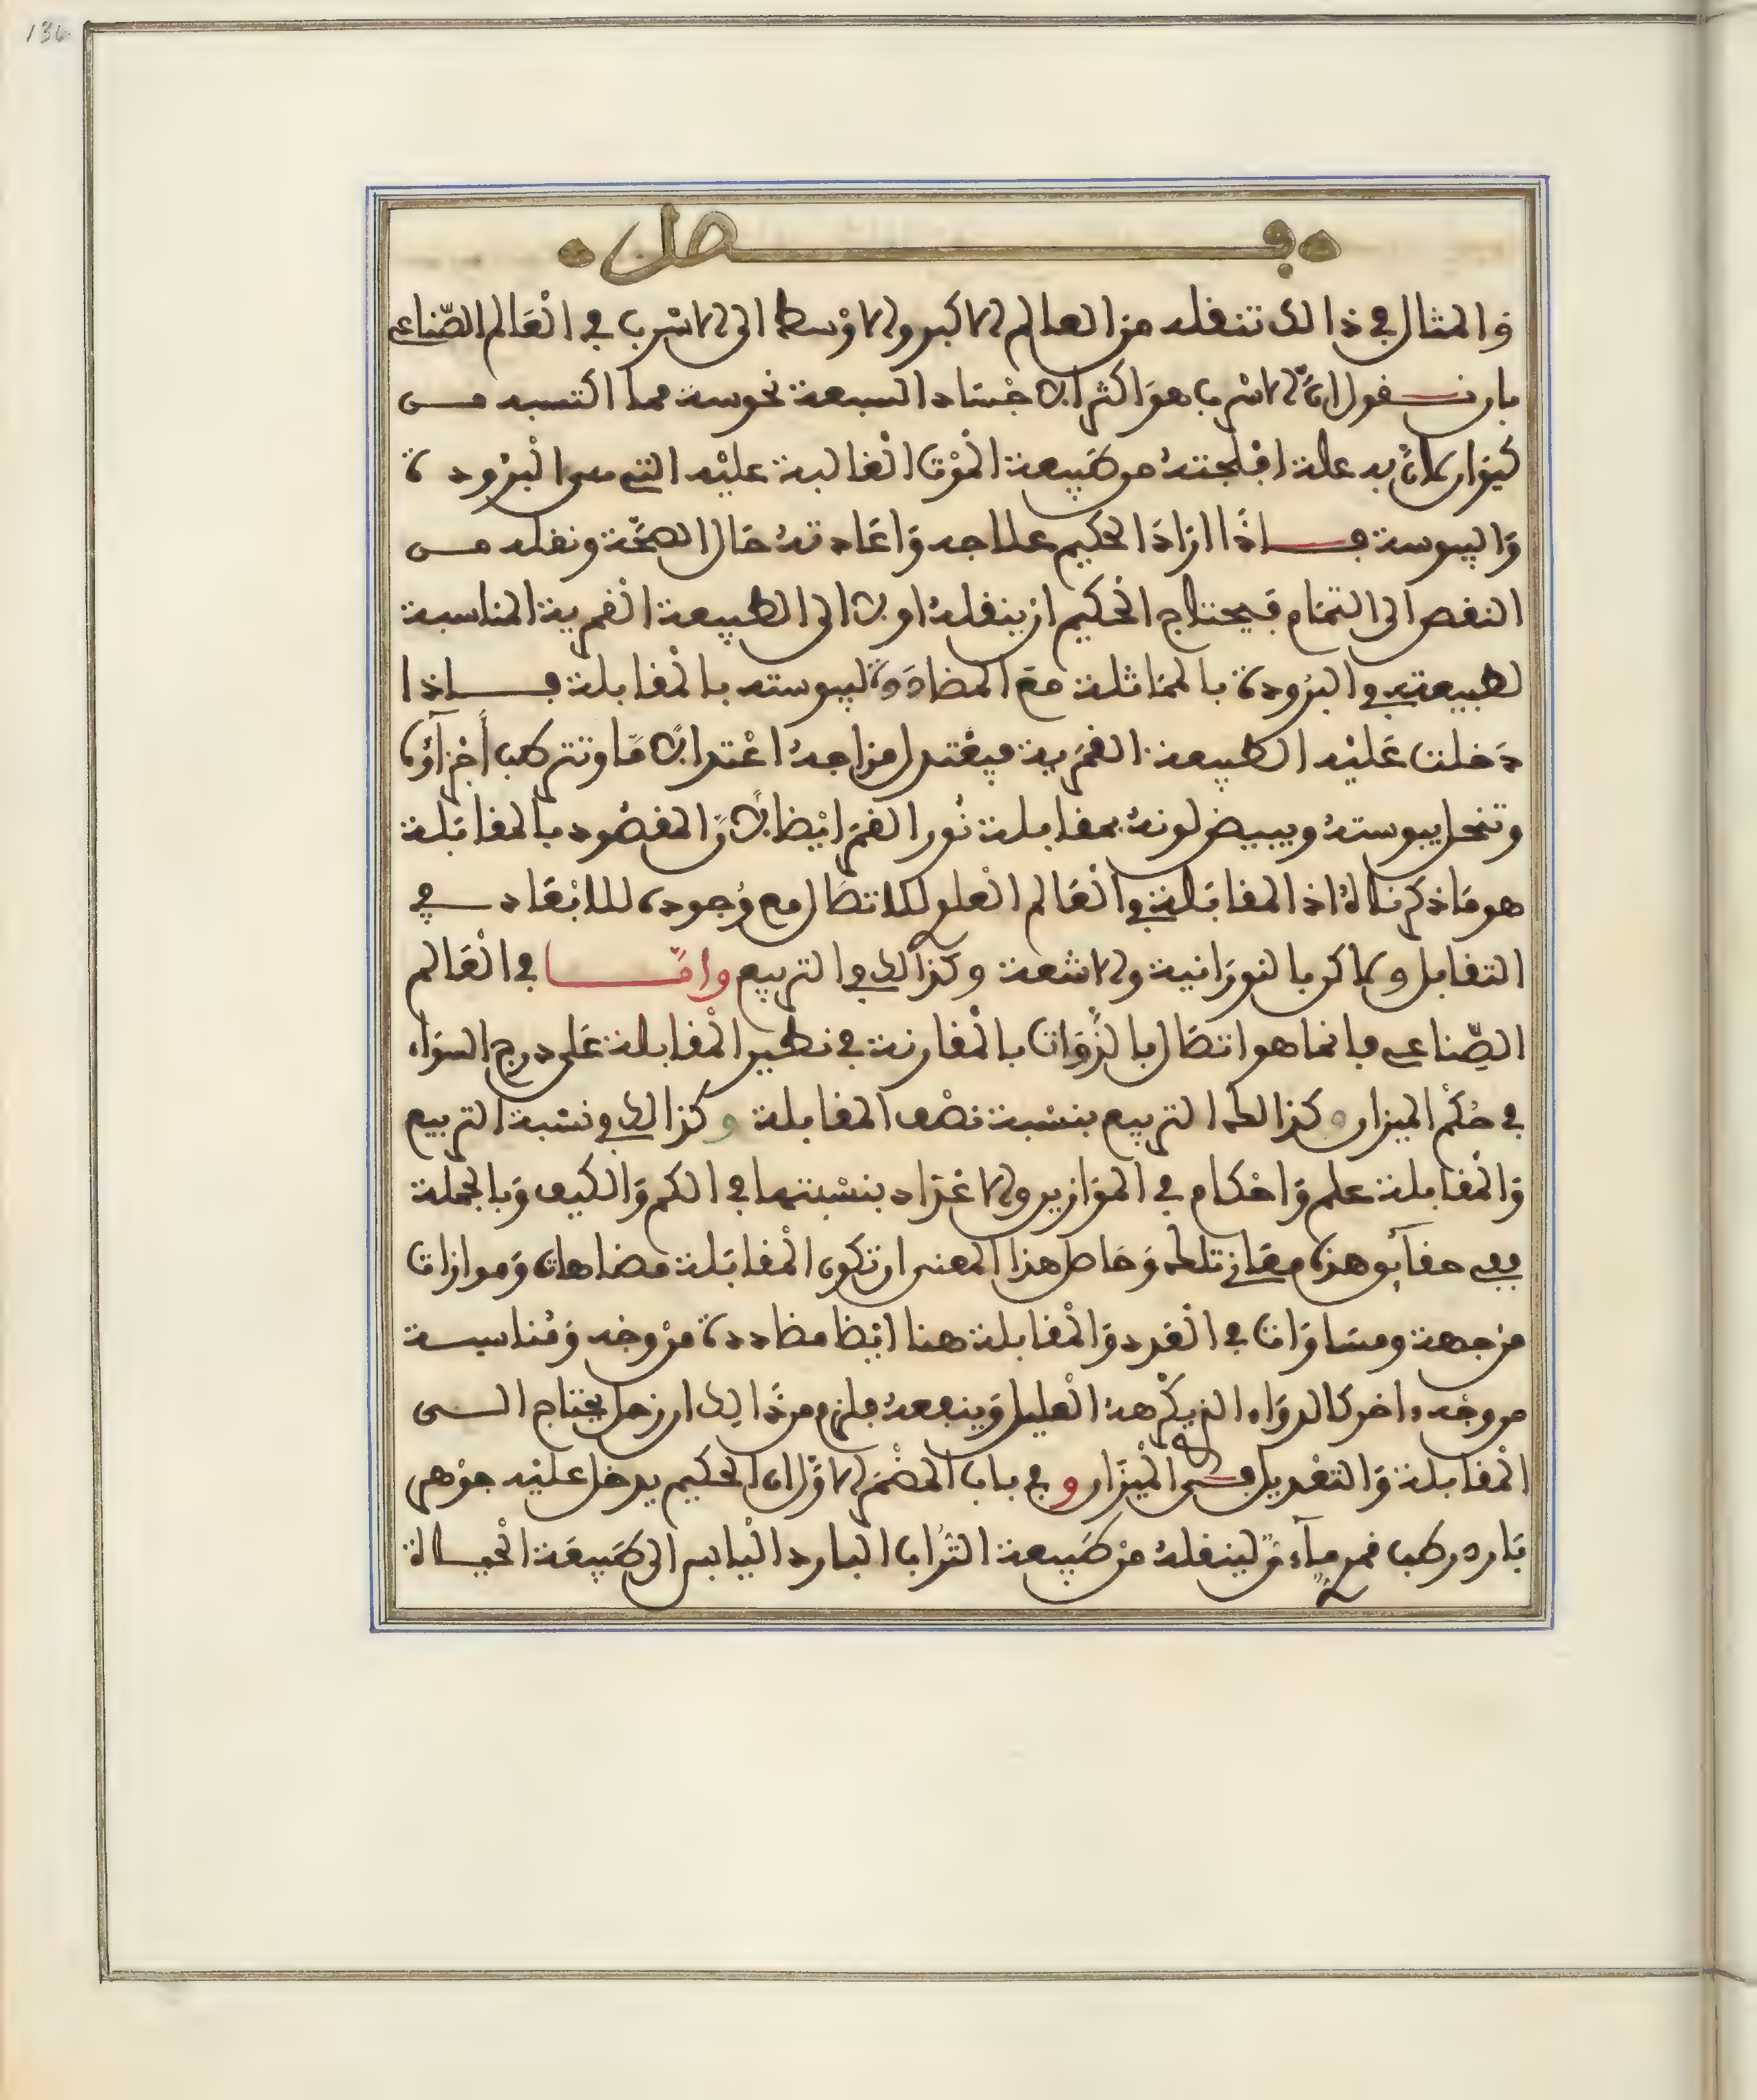 136
فصل
والمثال في ذالك تنقله من العالم الاكبر والاوسط الى الاسرب في العالم الصناعي
بان نقول ان الاسرب هو اكثر الاجساد السبعة نحوسة مما اكتسبه من
كيوان لان به علة افلجته من طبيعة الموت الغالبة عليه التي هي البرودة
واليبوسة فاذا اراد الحكيم علاجه واعادته حال الصحة ونقله من
النقص الى التمام فيحتاج الحكيم ان ينقله اولا الى الطبيعة القمرية المناسبة
لطبيعته في البرودة بالمماثلة مع المضاددة ليبوسته بالمقابلة فاذا
دخلت عليه الطبيعة القمرية فيعتدل مزاجه اعتدالا ما وتتركب أجزآؤه
وتنحل يبوسته ويبيض لونه بمقابلة نور القمر ايضا لان المقصود بالمقابلة
هو ما ذكرناه اذ المقابلة في العالم العلو للاتصال مع وجوده للابعاد في
التقابل ولاكن بالنورانية والاشعة وكذالك في التربيع واما في العالم
الصناعي فانما هو اتصال بالذوات بالمقارنة في نظير المقابلة على درج السواء
في حكم الميزان وكذالك التربيع بنسبة نصف المقابلة وكذالك في نسبة التربيع
والمقابلة علم واحكام في الموازين والاعداد بنسبتها في الكم والكيف وبالجملة
ففي حقآئق هذه معاني تلك وحاصل هذا المعنى ان تكون المقابلة مضاهات وموازات
من جهة ومساوات في القدد والمقابلة هنا ايضا مضاددة من وجه ومناسبة
من وجه ءاخر كالدواء الذي يكرهه العليل وينفعه فلزم من ذالك ان زحل يحتاج الى
المقابلة والتعديل في الميزان وفي باب المضمر الاول ان الحكيم يدخل عليه جوهر
بارد رطب قمر مآءي لينقله من طبيعة التراب البارد اليابس الى طبيعة الحياة